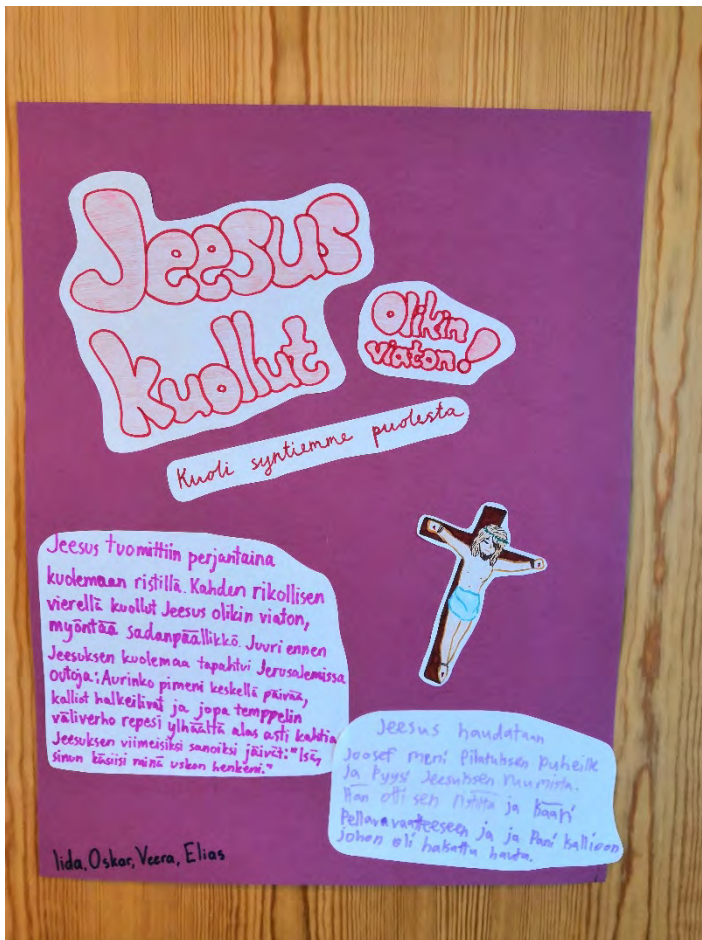 Jeesus
kuollut
Olikin
viaton!
Kuoli syntiemme puolesta
Jeesus tuomittiin perjantaina
kuolemaan ristillä. Kahden rikollisen
vierellä kuollut Jeesus olikin viaton,
myöntää sadanpäällikkö. Juuri ennen
Jeesuksen kuolemaa tapahtui Jerusalemissa
outoja: Aurinko pimeni keskellä päivää,
kalliot halkeilivat ja jopa temppelin
väliverho repesi ylhäältä alas asti kahtia
Jeesuksen viimeisiksi sanoiksi jäivät: "Isä,
sinun käsiisi minä uskon henkeni."
Jeesus haudataan
Joosef meni Pilatuksen puheille
ja pyysi Jeesuksen ruumista.
Hän otti sen ristiltä ja kääri
Pellavavaateeseen ja ja Pani kallioon
johon oli hakattu hauta.
Iida, Oskar, Veera, Elias